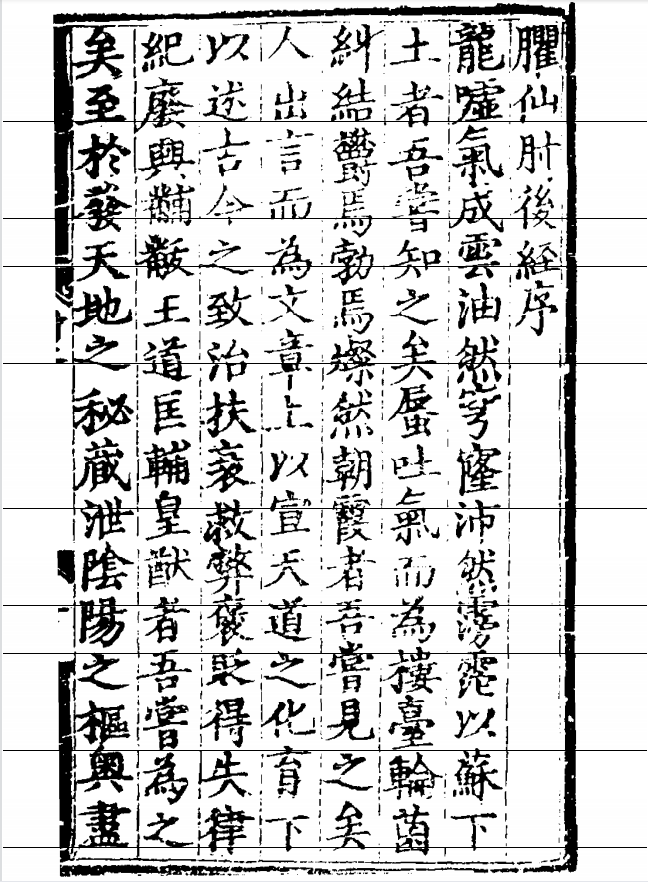 臞仙肘後経序
龍噓氣成雲油然穹窿沛然霶霈以蘇下
土者吾嘗知之矣蜃吐氣而為樓臺輪菌
糾結鬱焉勃焉燦然朝霞者吾嘗見之矣
人出言而為文章上以宣天道之化育下
以述古今之致治扶衰救弊褒貶得失律
紀廢興黼黻王道匡輔皇猷者吾嘗為之
矣至於發天地之秘藏泄陰陽之樞奧盡